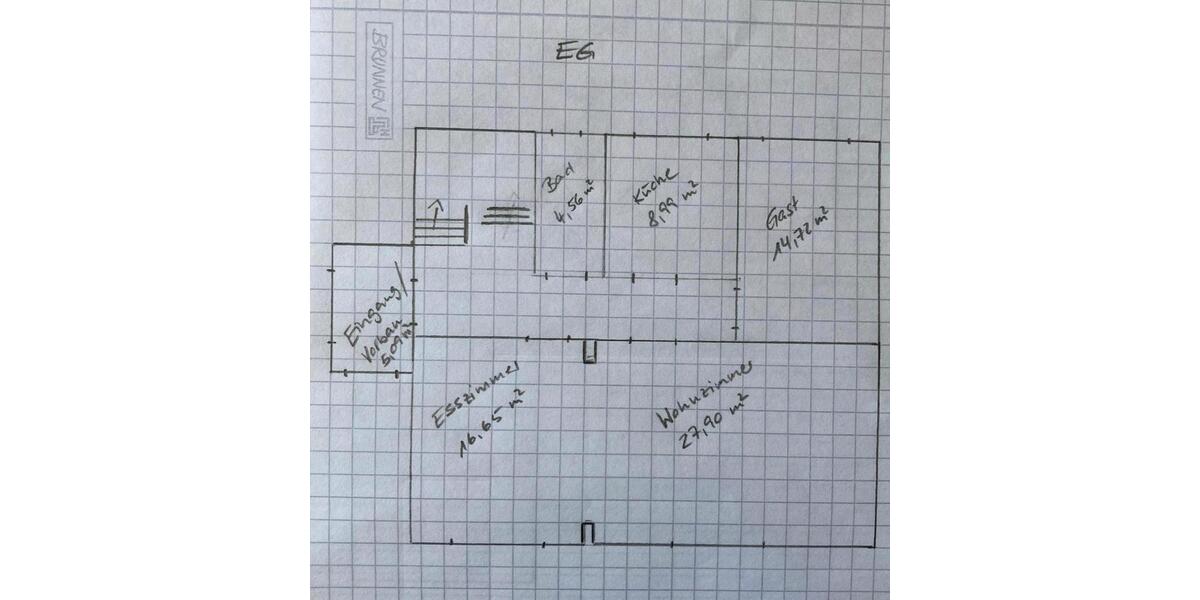 BRUNNEN
EG
Bad
4,56 m²
Küche
8,99 m²
Gast
14,72 m²
Eingang/
Vorbau
5,09 m²
Esszimmer
16,65 m²
Wohnzimmer
27,90 m²